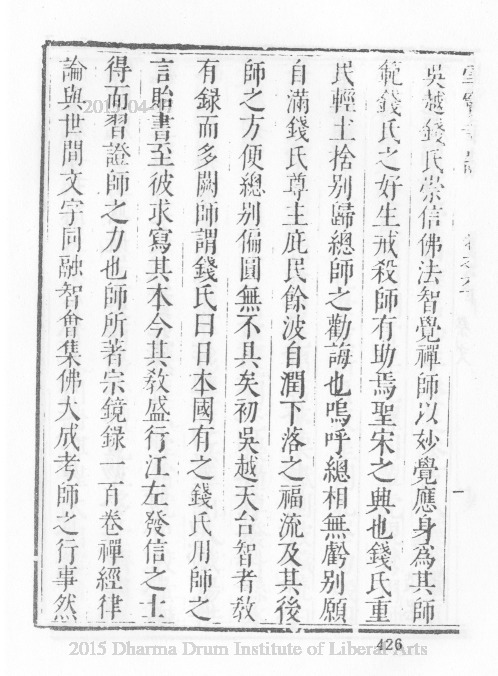 吳越錢氏崇信佛法智覺禪師以妙覺應身為其師
範錢氏之好生戒殺師有助焉聖宋之興也錢氏重
民輕土捨別歸總師之勸誨也嗚呼總相無虧別願
自滿錢氏尊主庇民餘波自潤下落之福流及其後
師之方便總別偏圓無不具矣初吳越天台智者教
有録而多闕師謂錢氏曰日本國有之錢氏用師之
言貽書至彼求寫其本今其教盛行江左發信之士
得而習證師之力也師所著宗鏡錄一百卷禪經律
論與世間文字同融智會集佛大成考師之行事然
426
2015 Dharma Drum Institute of Liberal Arts